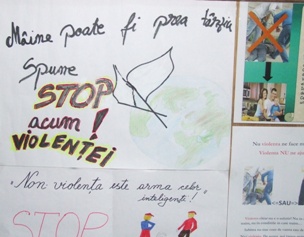 Mâine poate fi prea târziu
Spune
STOP
acum !
VIOLENȚEI
"Non violența este arma celor
inteligenți!"
STOP
Violența NU
<SAU>